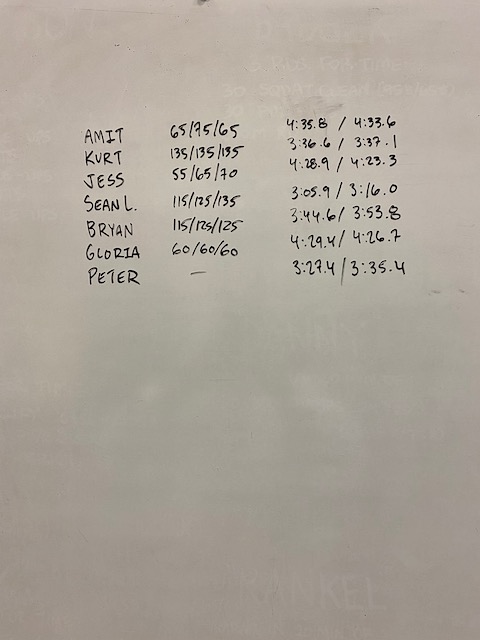 AMIT 65/75/65 4:35.8 / 4:33.6
KURT 135/135/135 3:36.6 / 3:37.1
JESS 55/65/70 4:28.9 / 4:23.3
SEAN L. 115/125/135 3:05.9 / 3:16.0
BRYAN 115/125/125 3:44.6 / 3:53.8
GLORIA 60/60/60 4:29.4 / 4:26.7
PETER — 3:27.4 / 3:35.4
KANKEL